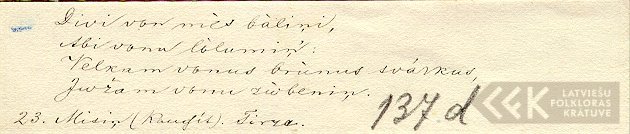 Divi von mēs bāliņi,
Abi vonu lolumiņ:
Velkam vonus brūnus svārkus,
Juožam vonu zūbeniņ.
23. Misiņ (Rangít). Tirza.
137 d
LATVIEŠU
FOLKLORAS
KRĀTUVE